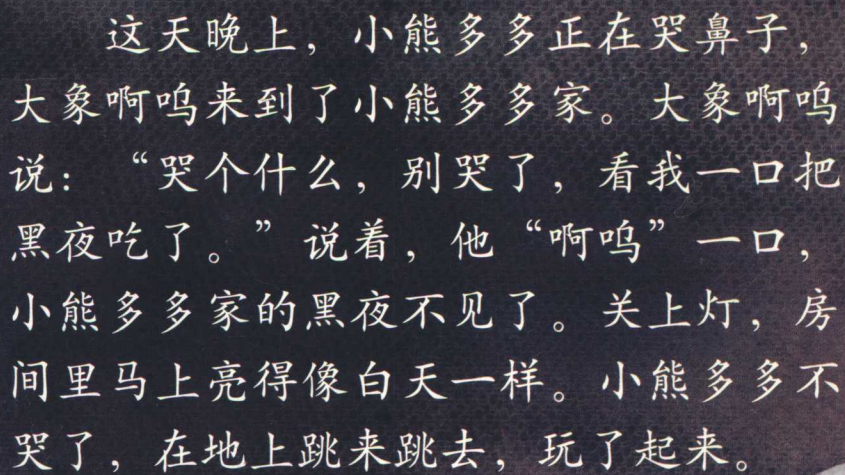 这天晚上，小熊多多正在哭鼻子，
大象啊呜来到了小熊多多家。大象啊呜
说：“哭个什么，别哭了，看我一口把
黑夜吃了。”说着，他“啊呜”一口，
小熊多多家的黑夜不见了。关上灯，房
间里马上亮得像白天一样。小熊多多不
哭了，在地上跳来跳去，玩了起来。